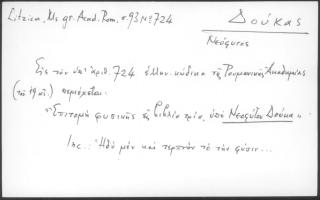 Litzica, Ms gr. Acad. Rom. σ. 93 Nº 724
Δούκας
Νεόφυτος
Εἰς τὸν ὑπ' ἀριθ. 724 ἑλλην. κώδικα τῆς Ρουμανικῆς Ἀκαδημίας
(τοῦ 19 αἰ.) περιέχεται:
"Ἐπιτομὴ φυσικῆς εἰς βιβλία τρία, ὑπὸ Νεοφύτου Δούκα".
Inc.: Ἡδὺ μὲν καὶ τερπνὸν τὸ τὴν φύσιν...